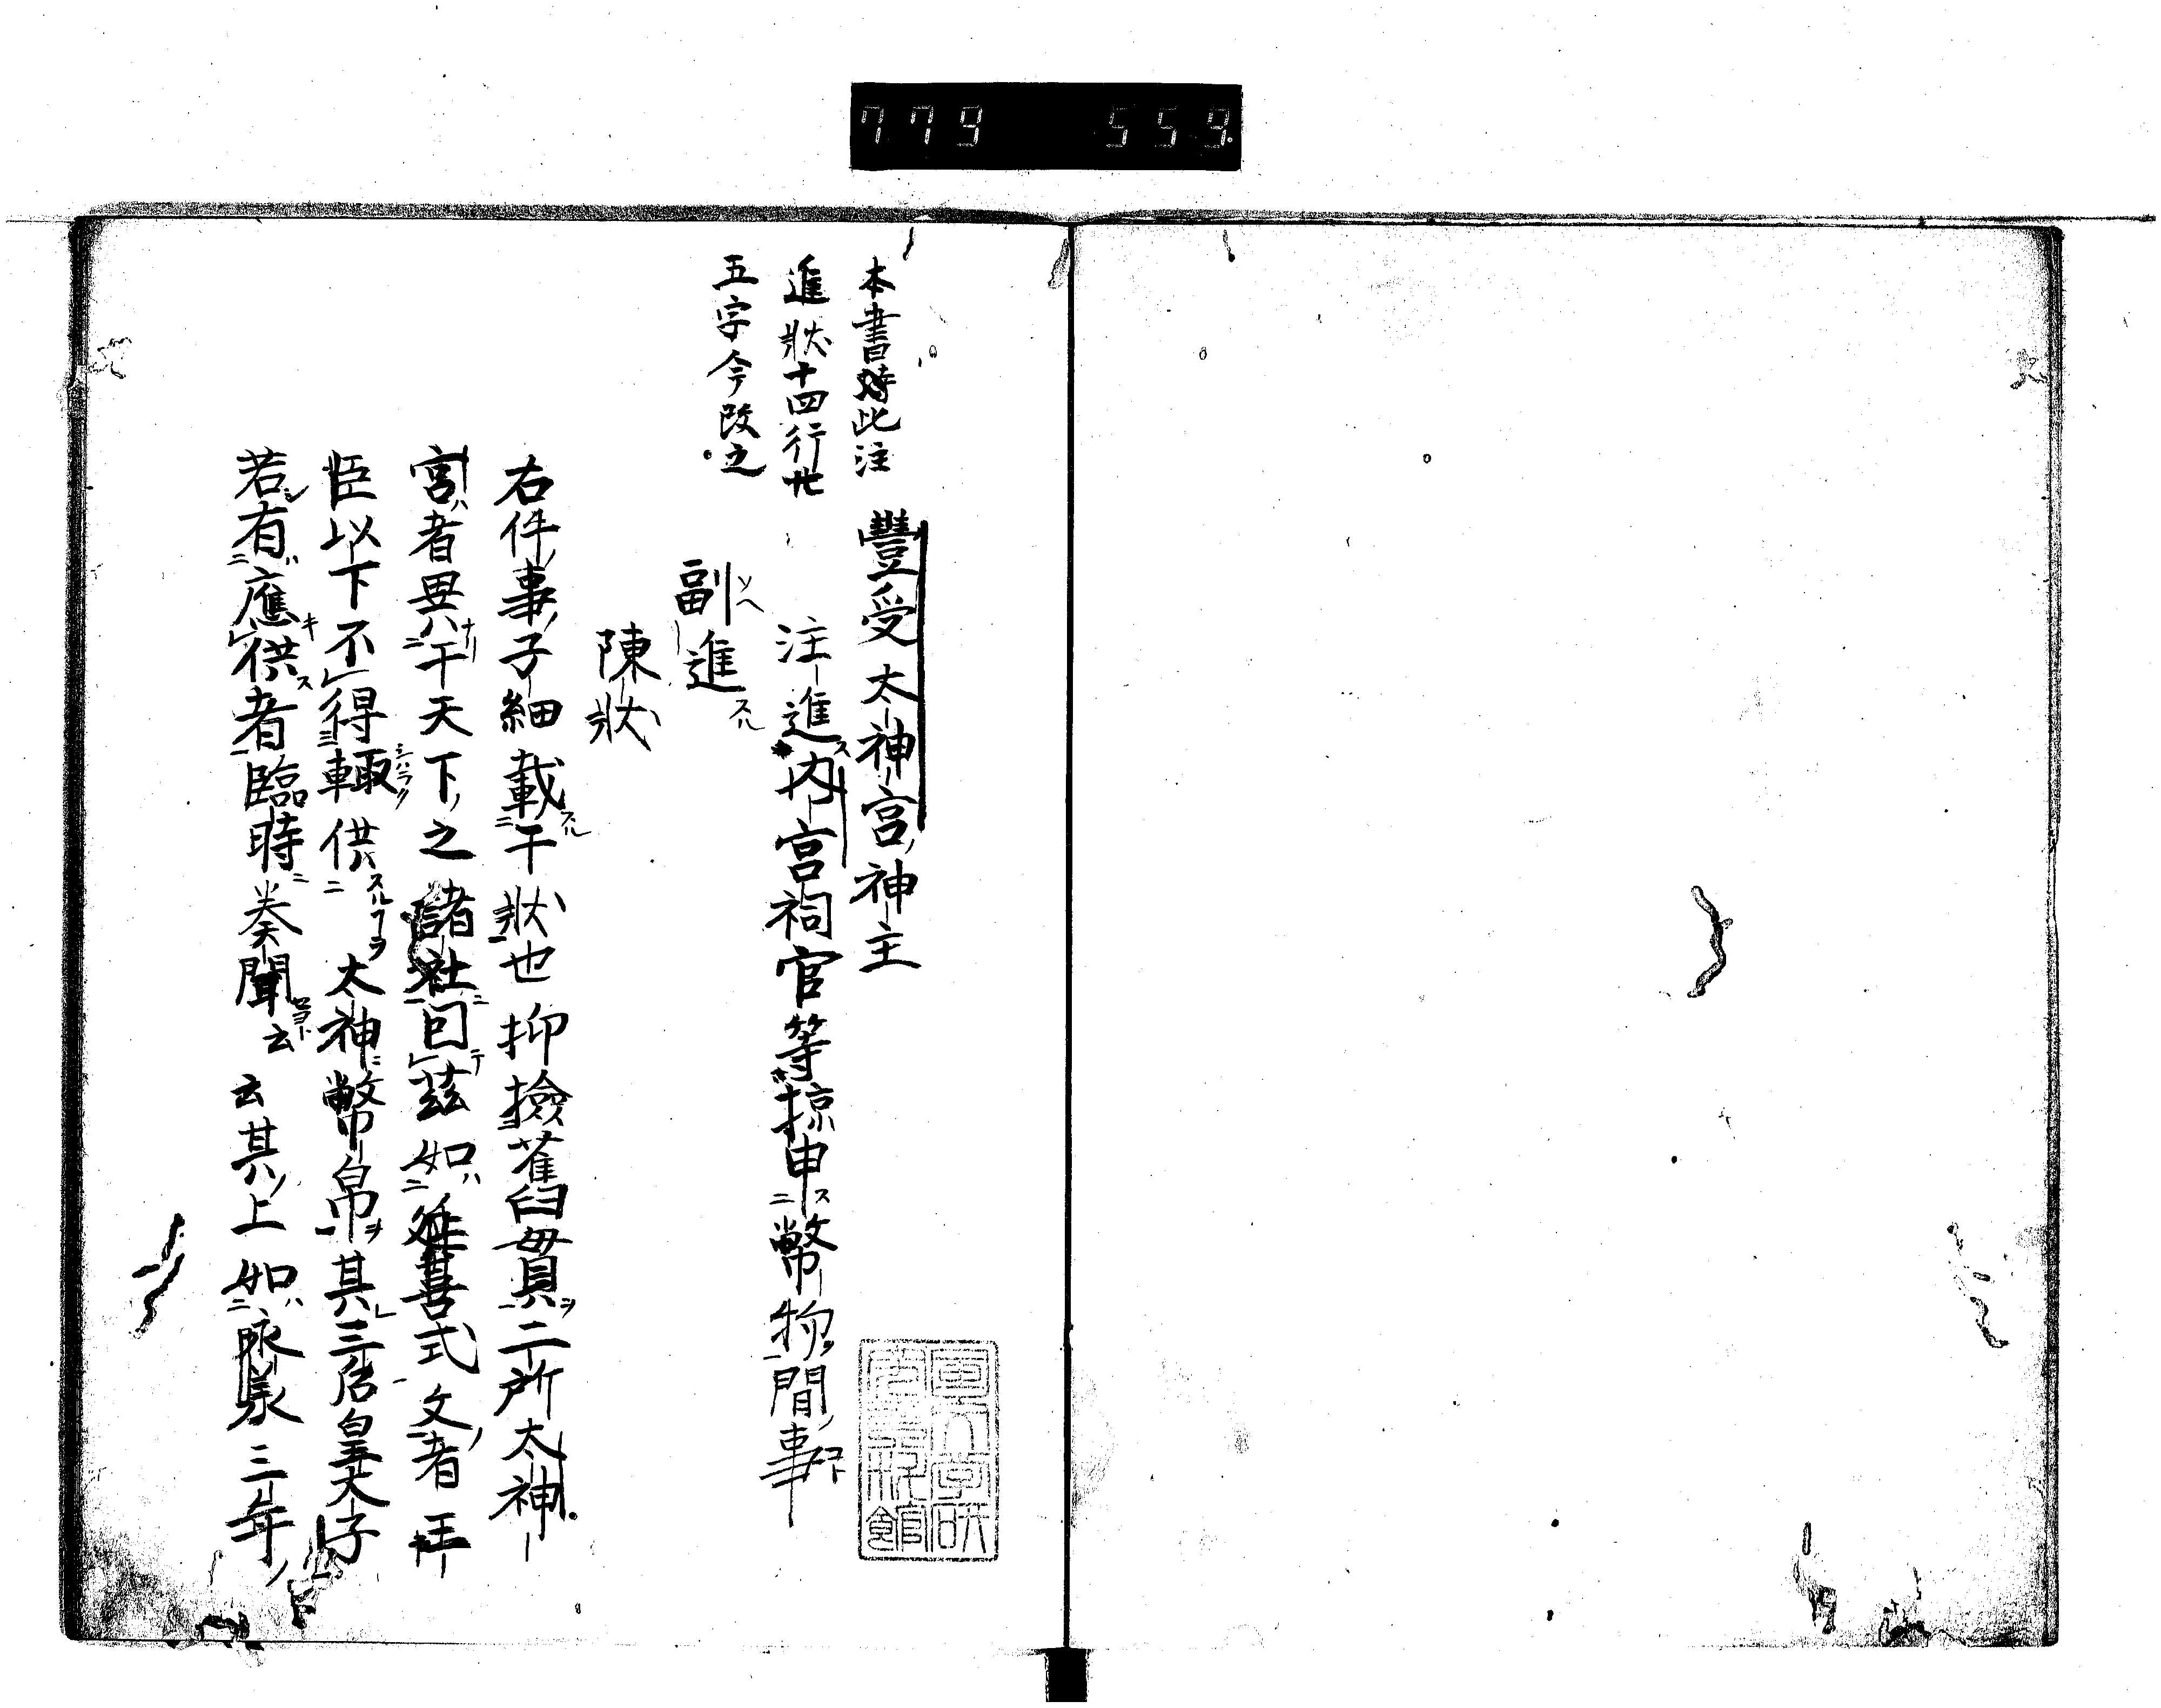 779 559.
本書時此注
進狀十四行廿
五字今改之
豐受太神宮神主
注進内宮祠官等掠申幣物間事
副進
陳狀
右件事子細載于狀也抑撿舊貫二所太神
宮者異于天下之諸社因茲如延喜式文者王
臣以下不得輙供太神幣帛其三后皇太子
若有應供者臨時奏聞云云其上如永泰三年